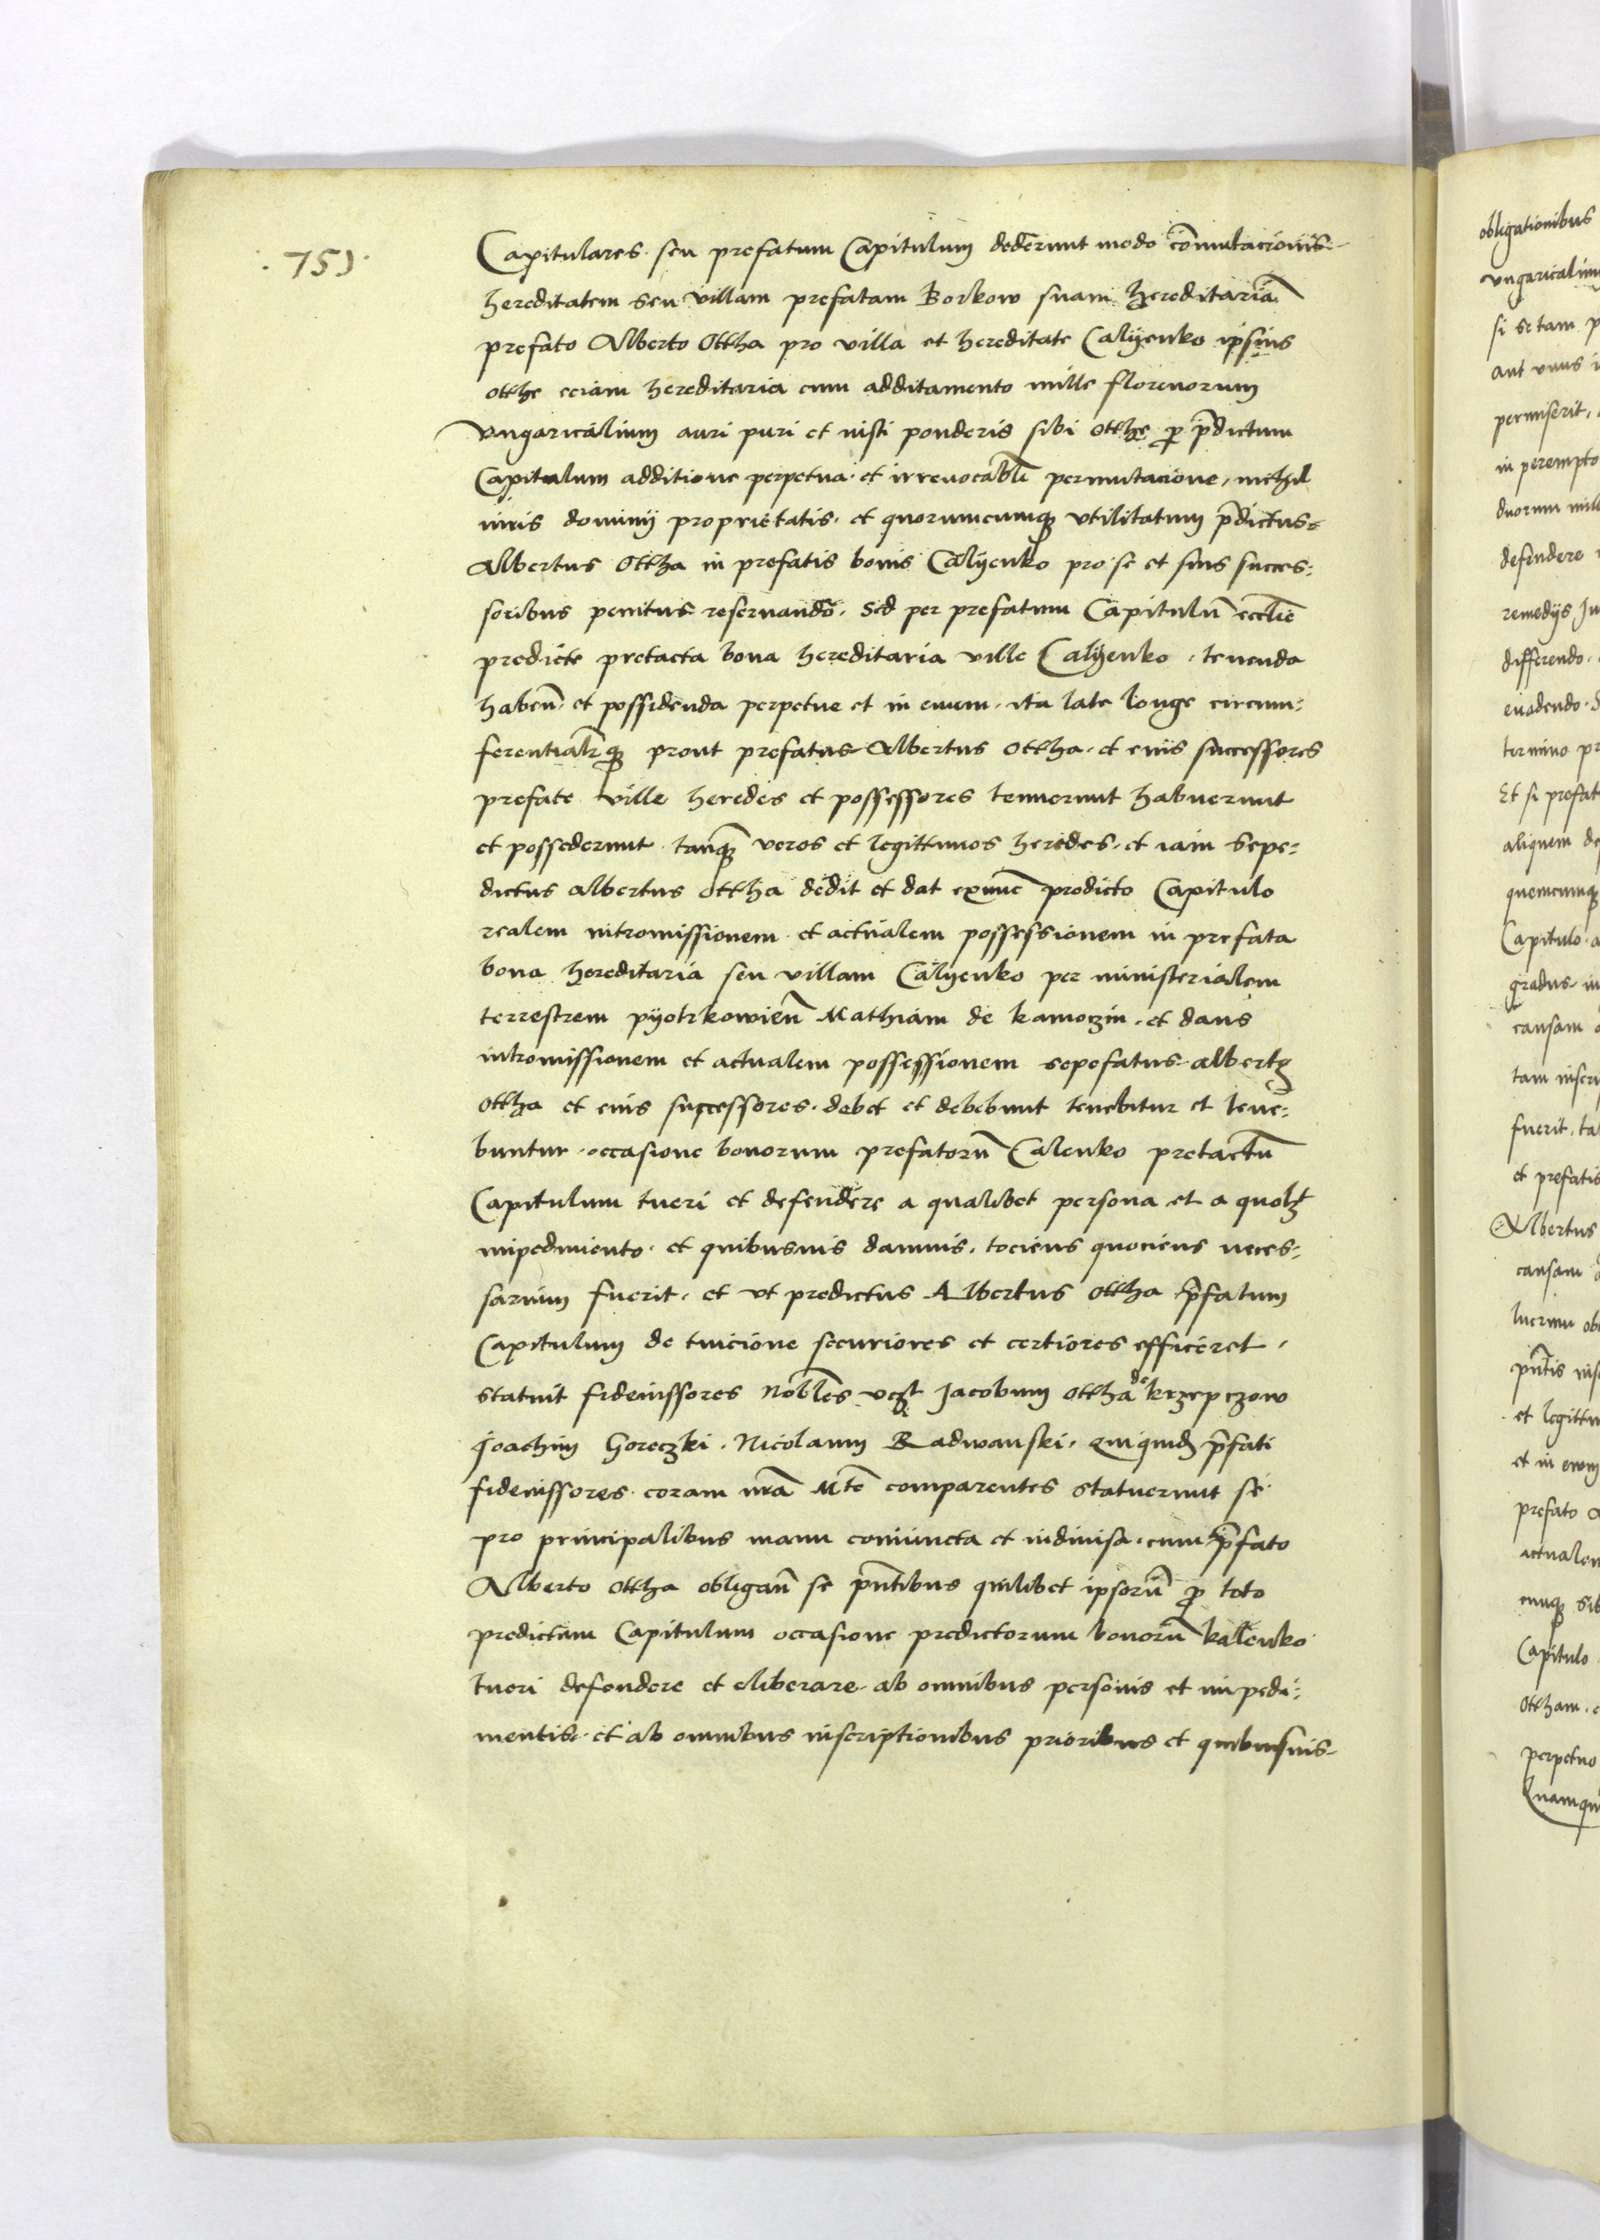 . 751 .
Capitulares. seu prefatum Capitulum dederunt modo cōmutacionis
hereditatem seu villam prefatam Borkow suam hereditariā
prefato Alberto Ottha pro villa et hereditate Calyenko ipsius
otthe eciam hereditaria cum additamento mille florenorum
Vngaricalium auri puri et iusti ponderis sibi otthe ꝑ p̄dictum
Capitulum additione perpetua. et irreuocabl̄i permutacione, nichil
iuris dominij proprietatis. et quorumcumqꝫ vtilitatum p̄dictus
Albertus Ottha in prefatis bonis Calyenko pro se et suis succes:
soribus penitus reseruando. Sed per prefatum Capitulū eccl̄ie
predicte pretacta bona hereditaria ville Calyenko. tenenda
habeñ. et possidenda perpetue et in euum. ita late longe circum:
ferentialr̄qꝫ prout prefatus Albertus Ottha. et eius successores
prefate ville heredes et possessores tenuerunt habuerunt
et possederunt tanqꝫ veros et legittimos heredes. et iam sepe:
dictus albertus Ottha dedit et dat exnunc predicto Capitulo
realem intromissionem et actualem possessionem in prefata
bona hereditaria seu villam Calyenko per ministerialem
terrestrem pyotrkowieñ Mathiam de kamoczin. et dans
intromissionem et actualem possessionem sepefatus albertꝯ
Ottha et eius successores. debet et debebunt tenebitur et tene:
buntur. occasione bonorum prefatorū Calenko pretactū
Capitulum tueri et defendere a qualibet persona et a quolꝫt
impedimento. et quibusuis damnis. tociens quociens neces:
sarium fuerit. et vt predictus Albertus Ottha p̄fatum
Capitulum de tuicione securiores et certiores efficeret.
statuit fideiussores Nobl̄es vcꝫt Jacobum Ottha de krzepczow
Joachim Goreczki. Nicolaum Radwanski. Quiquidꝫ p̄fati
fideiussores. coram nr̄a Mte comparentes statuerunt se
pro principalibus manu coniuncta et indiuisa. cum p̄fato
Alberto Ottha obligañ se p̄ntibus quilibet ipsorū ꝓ toto
predictum Capitulum occasione predictorum bonorū kalenko
tueri defendere et eliberare. ab omnibus personis et impedi:
mentis. et ab omnibus inscriptionibus prioribus et quibusuis
obligationibus
si se tam
permiserit,
in perempto
defendere
remedijs
differendo.
euadendo.
termino
aliquem
quemcumqꝫ
Capitulo.
gradus.
causam
fuerit.
et prefatis
Albertus
causam
et in euum
prefato
Capitulo
Ottham.
perpetuo